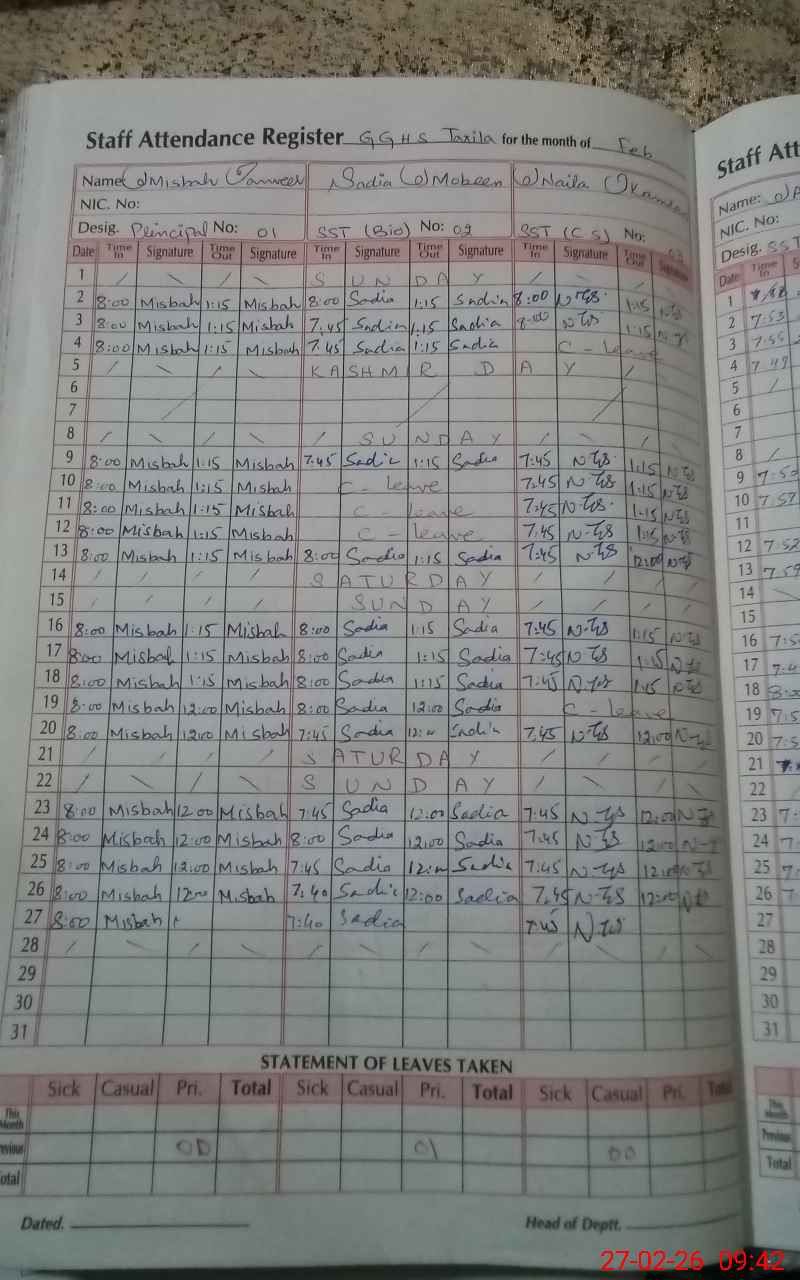 Staff Attendance Register GGHS Taxila for the month of Feb
Name Misbah Tanveer Sadia Mobeen Naila
NIC. No:
Desig. Principal No: 01 SST (Bio) No: 02 SST (CS) No: 03
Date Time In Signature Time Out Signature Time In Signature Time Out Signature Time In Signature Time Out Signature
1 / \ / \ S U N D A Y / \ /
2 8:00 Misbah 1:15 Misbah 8:00 Sadia 1:15 Sadia 8:00 1:15
3 8:00 Misbah 1:15 Misbah 7:45 Sadia 1:15 Sadia 8:00 1:15
4 8:00 Misbah 1:15 Misbah 7:45 Sadia 1:15 Sadia C - leave
5 / \ / \ K A S H M I R D A Y /
6
7
8 / \ / \ / S U N D A Y / \ /
9 8:00 Misbah 1:15 Misbah 7:45 Sadia 1:15 Sadia 7:45 1:15
10 8:00 Misbah 1:15 Misbah C - leave 7:45 1:15
11 8:00 Misbah 1:15 Misbah C - leave 7:45 1:15
12 8:00 Misbah 1:15 Misbah C - leave 7:45 1:15
13 8:00 Misbah 1:15 Misbah 8:00 Sadia 1:15 Sadia 7:45 12:00
14 / / / / S A T U R D A Y / / / /
15 / / / / S U N D A Y / / / /
16 8:00 Misbah 1:15 Misbah 8:00 Sadia 1:15 Sadia 7:45 1:15
17 8:00 Misbah 1:15 Misbah 8:00 Sadia 1:15 Sadia 7:45 1:15
18 8:00 Misbah 1:15 Misbah 8:00 Sadia 1:15 Sadia 7:45 1:15
19 8:00 Misbah 12:00 Misbah 8:00 Sadia 12:00 Sadia C - leave
20 8:00 Misbah 12:00 Misbah 7:45 Sadia 12:00 Sadia 7:45 12:00
21 / / / / S A T U R D A Y / / / /
22 / \ / \ S U N D A Y / \ / \
23 8:00 Misbah 12:00 Misbah 7:45 Sadia 12:00 Sadia 7:45 12:00
24 8:00 Misbah 12:00 Misbah 8:00 Sadia 12:00 Sadia 7:45 12:00
25 8:00 Misbah 12:00 Misbah 7:45 Sadia 12:00 Sadia 7:45 12:00
26 8:00 Misbah 12:00 Misbah 7:40 Sadia 12:00 Sadia 7:45 12:00
27 8:00 Misbah 7:40 Sadia 7:45
28 / \ / \ / \ / \ / \ / \
29
30
31
STATEMENT OF LEAVES TAKEN
Sick Casual Pri. Total Sick Casual Pri. Total Sick Casual Pri. Total
This Month
Previous 00 01 00
Total
Dated. Head of Deptt.
Staff Att
Name:
NIC. No:
Desig. SST
Date Time In
1
2 7:53
3 7:55
4 7:49
5 /
6
7
8 /
9 7:50
10 7:57
11
12 7:52
13 7:59
14 \
15
16
17
18
19
20
21
22
23
24
25
26
27
28
29
30
31
This Month
Previous
Total
27-02-26 09:42